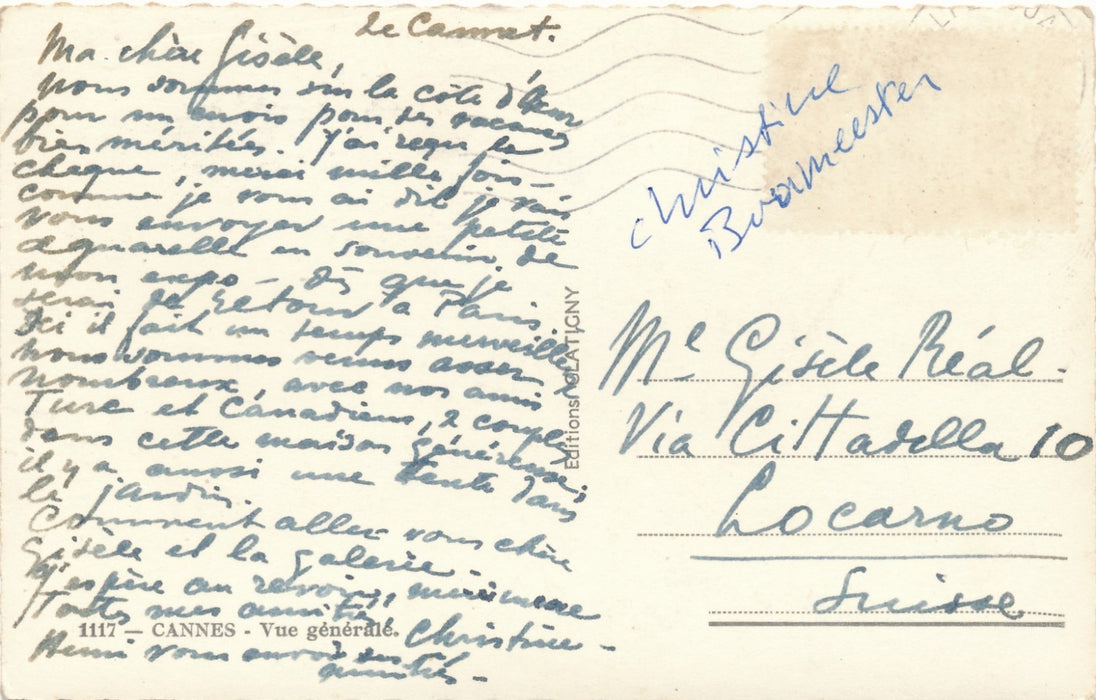 Le Cannet.
Ma chère Gisèle,
nous sommes sur la côte d'Azur
pour un mois pour ses vacances
bien méritées. J'ai reçu le
cheque, merci mille fois –
comme je vous ai dit je vais
vous envoyer une petite
aquarelle en souvenir de
mon expo – dès que je
serai de retour à Paris.
Ici il fait un temps merveill.
nous sommes venus assez
nombreux, avec nos amis
Turc et Canadiens, 2 couples
dans cette maison généreuse,
il y a aussi une tente dans
le jardin.
Comment allez vous chère
Gisèle et la galerie –
J'espère au revoir,
Toutes mes amitiés, Christine –
Henri vous envoie ses
amitiés –
1117 – CANNES - Vue générale.
Editions AGLATIGNY
Christine
Boumeester
Me Gisèle Réal.
Via Cittadella 10
Locarno
Suisse